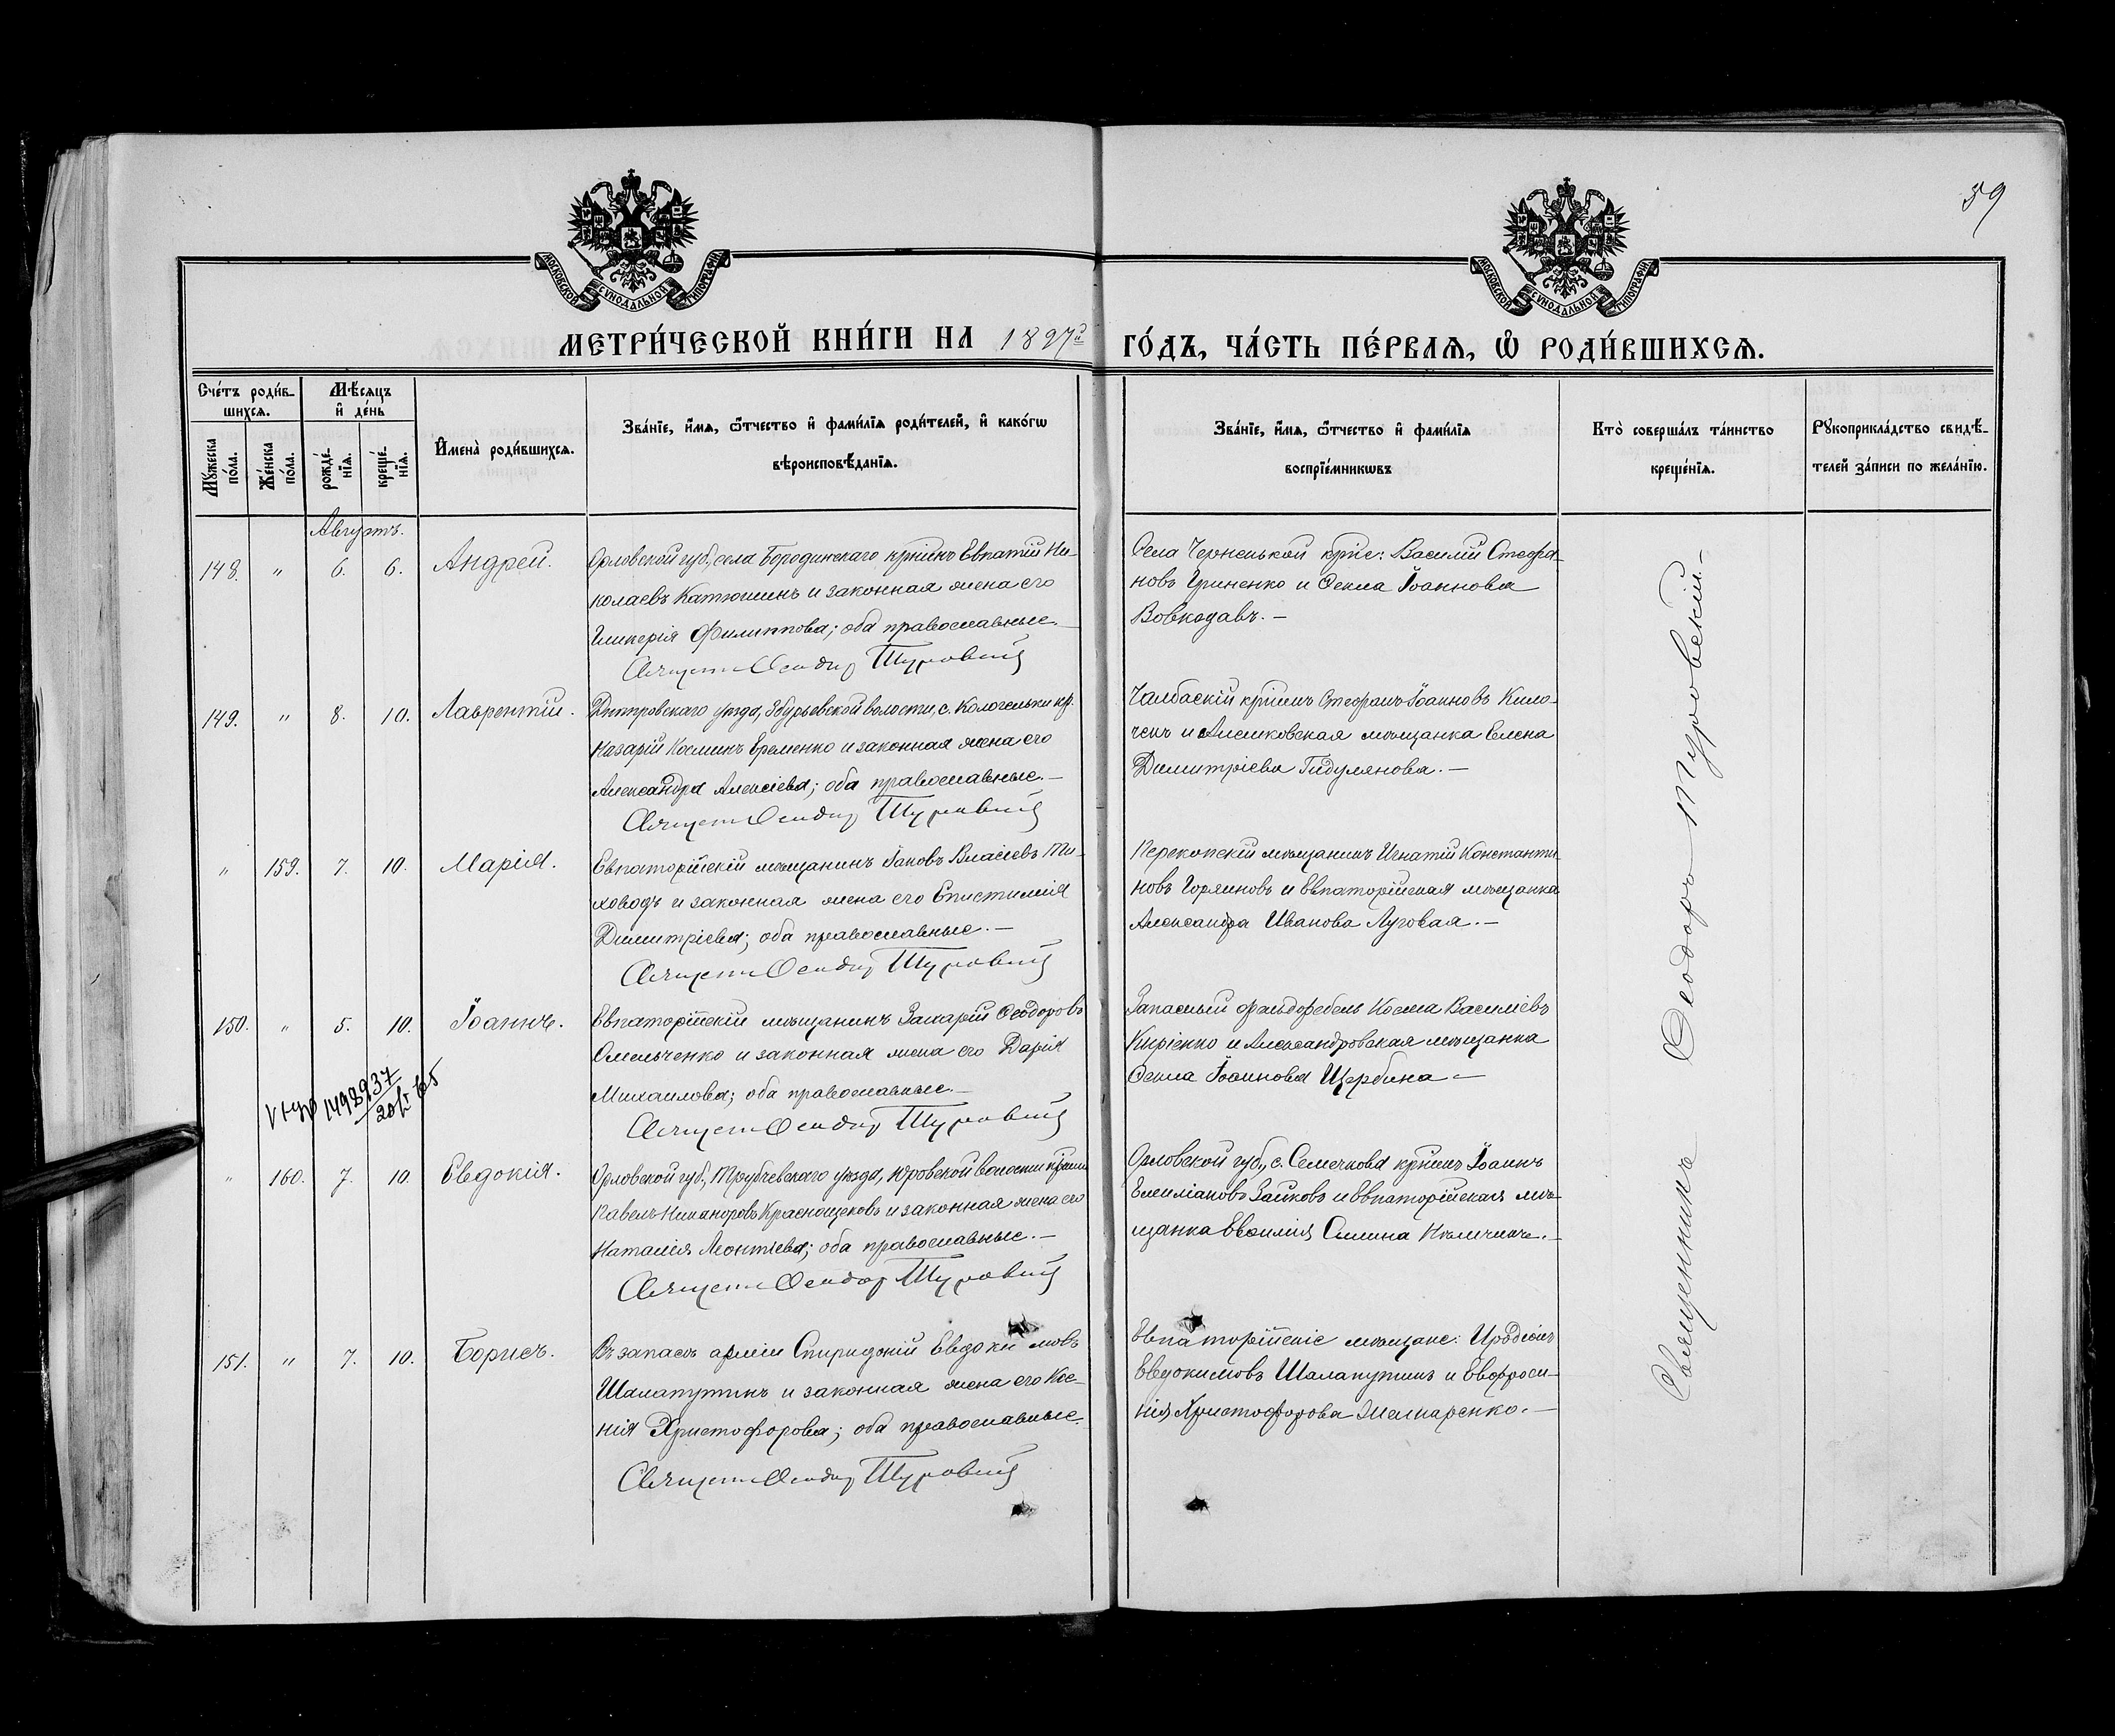 59
МОСКОВСКОЙ СѴНОДАЛЬНОЙ ТИПОГРАФІИ
МОСКОВСКОЙ СѴНОДАЛЬНОЙ ТИПОГРАФІИ
МЕТРИ́ЧЕСКОЙ КНИ́ГИ НА 1897й ГО́ДЪ, ЧА́СТЬ ПЕ́РВАѦ, Ѡ РОДИ́ВШИХСѦ.
Сче́тъ роди́в-
шихсѧ.
Мѣ́сяцъ
и де́нь
Мꙋ́жеска
по́ла.
Же́нска
по́ла.
рожде́-
нїѧ.
креще́-
нїѧ.
Имена̀ роди́вшихсѧ.
Зва́нїе, и́мѧ, ѻ́тчество и фами́лїѧ роди́телей, и како́гѡ
вѣроисповѣ́данїѧ.
Зва́нїе, и́мѧ, ѻ́тчество и фами́лїѧ
воспрїе́мникѡвъ
Кто̀ соверша́лъ та́инство
креще́нїѧ.
Рꙋкоприкла́дство свидѣ́-
телей за́писи по жела́нїю.
Августъ.
148. " 6. 6. Андрей.
Орловской губ., села Бородинскаго крѣнъ Евпатій Ни-
колаевъ Катюшинъ и законная жена его
Гликерія Филиппова; оба православные.—
Священ. Ѳеодор Туровский
Села Черненькой крѣс: Василій Стефа-
новъ Гриненко и Ѳекла Іоаннова
Вовкодавъ.—
149. " 8. 10. Лаврентій.
Днѣпровскаго уѣзда, Збурьевской волости, с. кр.
Назарій Косминъ Еременко и законная жена его
Александра Алексіева; оба православные.—
Священ. Ѳеодор Туровский
Чалбаскій крѣнинъ Стефанъ Іоанновъ Кило-
чекъ и Алешковская мѣщанка Елена
Димитріева Гидулянова.—
" 159. 7. 10. Марія.
Евпаторійскій мѣщанинъ Іаковъ Власіевъ Ти-
ховодъ и законная жена его Епистимія
Димитріева; оба православные.—
Священ. Ѳеодор Туровский
Перекопскій мѣщанинъ Игнатій Константи-
новъ Горяиновъ и Евпаторійская мѣщанка
Александра Иванова Луговая.—
150. " 5. 10. Іоаннъ.
Евпаторійскій мѣщанинъ Захарій Ѳеодоровъ
Омельченко и законная жена его Дарія
Михаилова; оба православные.—
Священ. Ѳеодор Туровский
Запасный фельдфебель Косма Василіевъ
Киріенко и Александровская мѣщанка
Ѳекла Іоаннова Щербина—
1498937
20/V 65
" 160. 7. 10. Евдокія.
Орловской губ., Трубчевскаго уѣзда, Юровской волости крѣнинъ
Павелъ Никаноровъ Краснощековъ и законная жена его
Наталія Леонтіева; оба православные.—
Священ. Ѳеодор Туровский
Орловской губ., с. Семечкова крѣнинъ Іоаннъ
Емиліановъ Зайковъ и Евпаторійская мѣ-
щанка Евѳимія Силина
151. " 7. 10. Борисъ.
Въ запасѣ арміи Спиридоній Евдокимовъ
Шалапутинъ и законная жена его Ксе-
нія Христофорова; оба православные.
Священ. Ѳеодор Туровский
Евпаторійскіе мѣщане: Иродіонъ
Евдокимовъ Шалапутинъ и Евфроси-
нія Христофорова Шкапаренко.—
Священникъ Ѳеодоръ Туровскій—